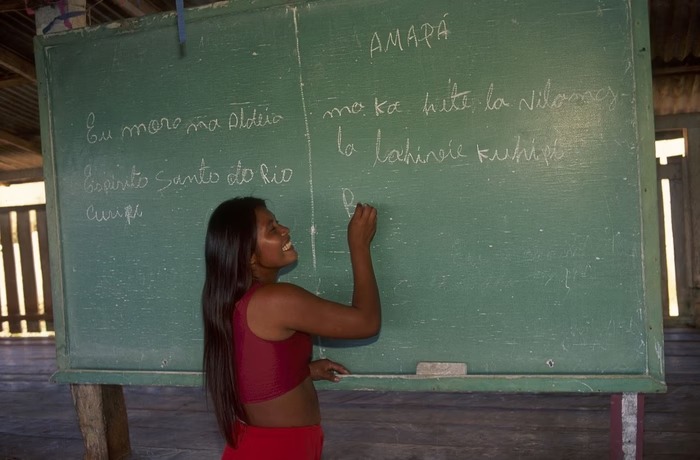 AMAPÁ
Eu moro na Aldeia
Espirito Santo do Rio
Curipi
mo ka hite la vilaj
la lahivie kuhipi